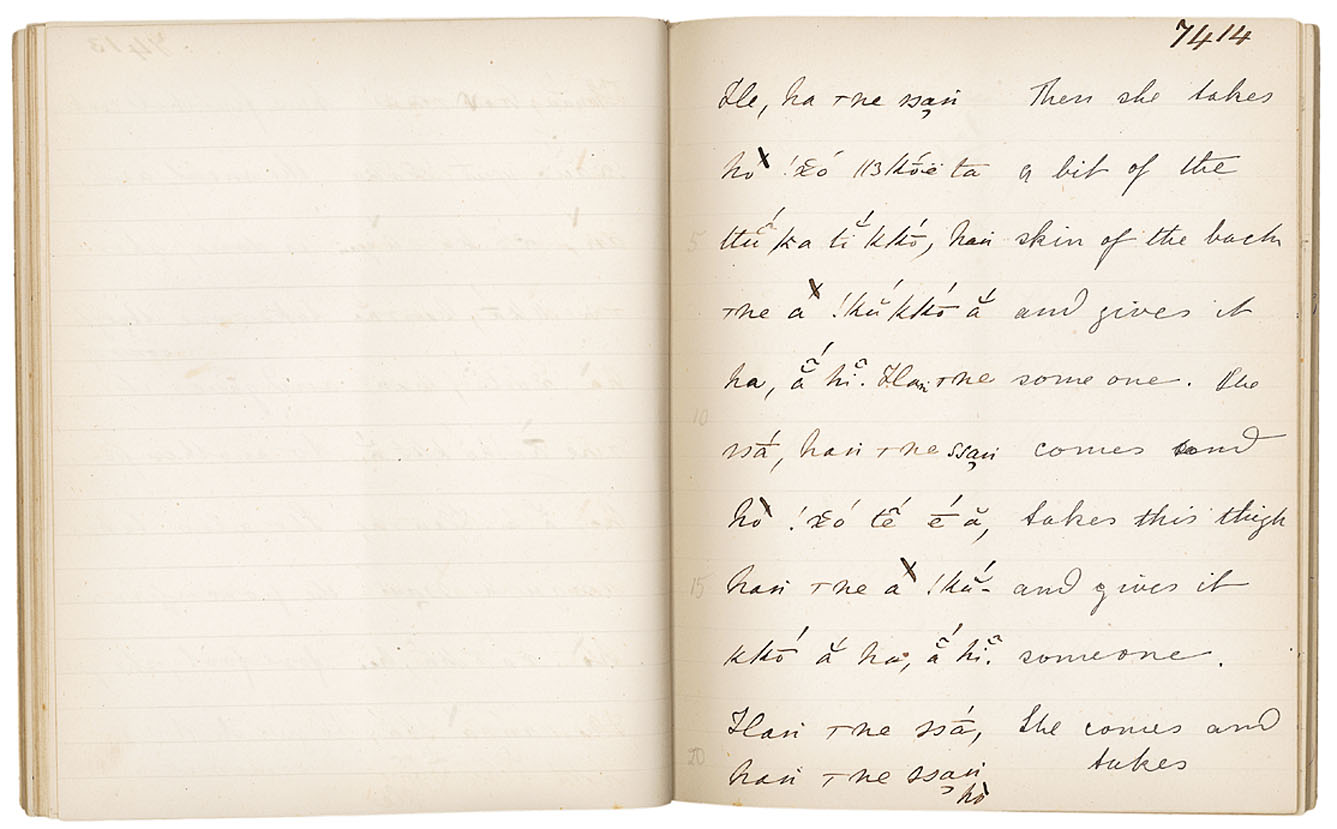 7414
He, ha ⊤ne ssa̤ṅ Then she takes
hò !χó kóë ta a bit of the
ka ti kkó, haṅ skin of the back
⊤ne à !kŭ́kkó ā̆ and gives it
ha, hĭ. Haṅ ⊤ne some one. She
ssā́, haṅ ⊤ne ssa̤ṅ comes and
hò !χó tĕ́ ḗ ă, takes this thigh
5
10
haṅ ⊤ne à !kŭ́- and gives it
15
kkṓ ā̆ ha, hĭ. someone.
Haṅ ⊤ne ssā́, She comes and
haṅ ⊤ne ssa̤ṅ takes
20
hò